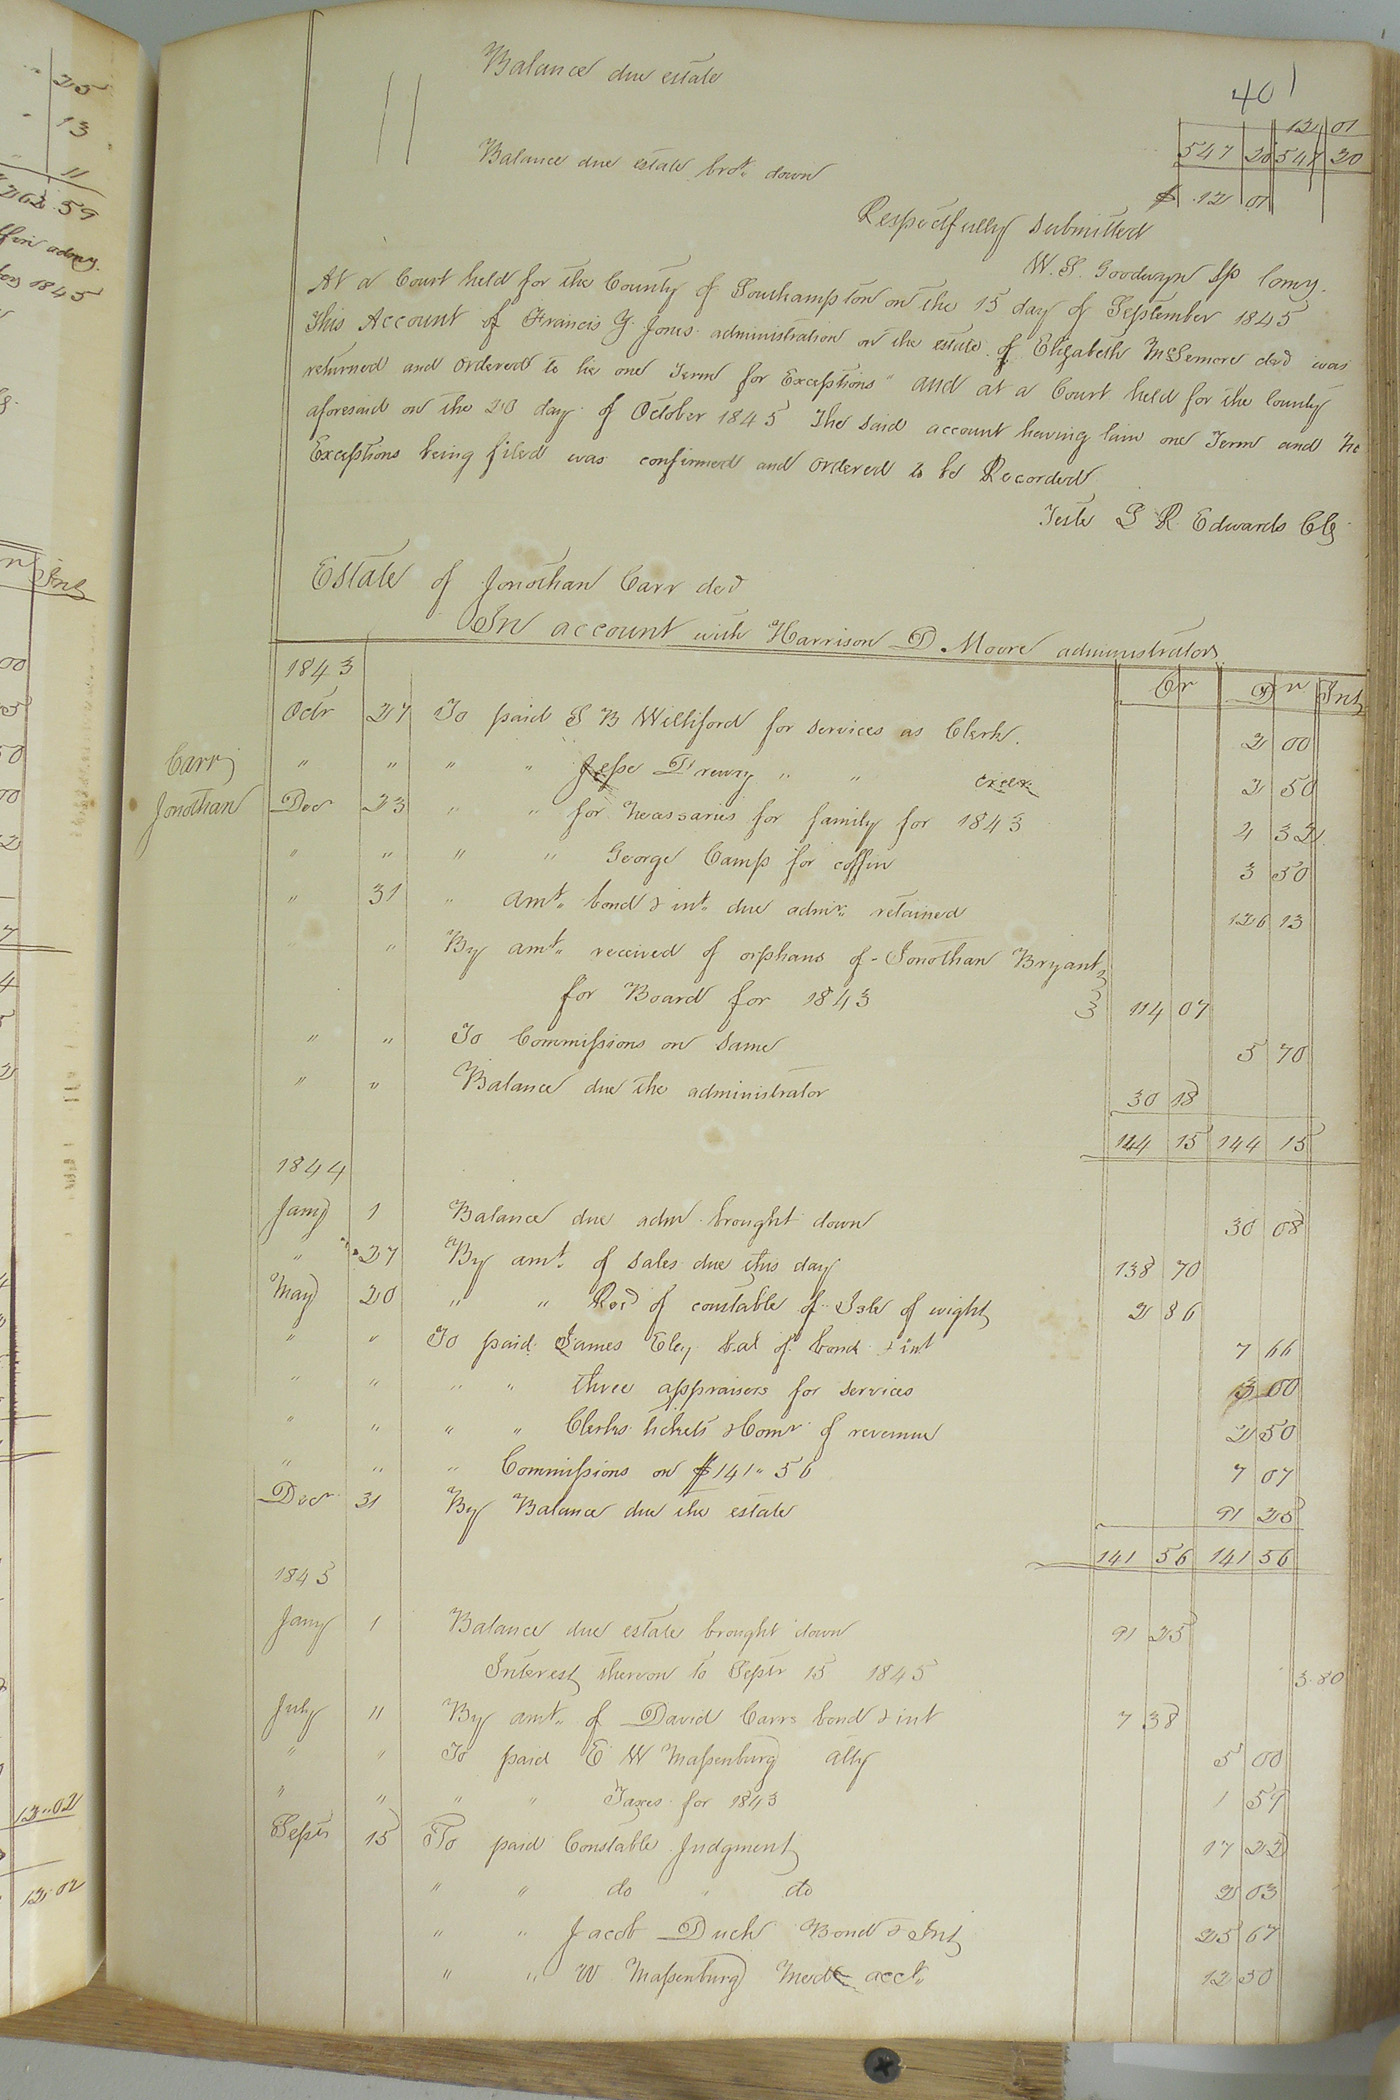 401
Balance due estate 12 01
547 20 547 20
Balance due estate bro't down $ 12 01
Respectfully submitted
W. S. Goodwyn Sp Comy.
At a Court held for the County of Southampton on the 15 day of September 1845
This Account of Francis Y. Jones administration on the estate of Elizabeth McLemore decd was
returned and ordered to lie one Term for Exceptions" and at a Court held for the County
aforesaid on the 20 day of October 1845 The said account having lain one Term and no
Exceptions being filed was confirmed and ordered to be Recorded
Teste L R. Edwards Clk
Estate of Jonothan Carr decd
In account with Harrison D. Moore administrator
Carr Jonothan
1843 Cr Dr Int
Octr 27 To paid S B Williford for services as Clerk. 2 00
" " " " Jesse Drewry " " crier 2 50
Decr 23 " " for neassaries for family for 1843 4 32
" " " " George Camp for coffin 3 50
" 31 " Amt. bond & int. due admr. retained 126 13
" " By amt. received of orphans of Jonothan Bryant
for Board for 1843 114 07
" " To Commissions on same 5 70
" " Balance due the administrator 30 18
144 15 144 15
1844
Jany 1 Balance due adm brought down 30 08
" 27 By amt. of sales due this day 138 70
May 20 " " Recd of constable of Isle of wight 2 86
" " To paid James Eley bal of bond & int 7 66
" " " " three appraisers for services 3 00
" " " " Clerks tickets & Comr of revenue 2 50
" " " Commissions on $141" 56 7 07
Decr 31 By Balance due the estate 91 25
141 56 141 56
1845
Jany 1 Balance due estate brought down 91 25
Interest thereon to Septr 15 1845 3.80
July 11 By amt. of David Carrs bond & int 7 38
" " To paid E W Massenburg atty 5 00
" " " " Taxes for 1843 1 59
Septr 15 To paid Constable Judgment 17 22
" " do " do 2 03
" " Jacob Duck Bond & Int 25 67
" " W Massenburg Med acct. 12 50
25
13
11
262.59
1845
Int
12..02
12.02